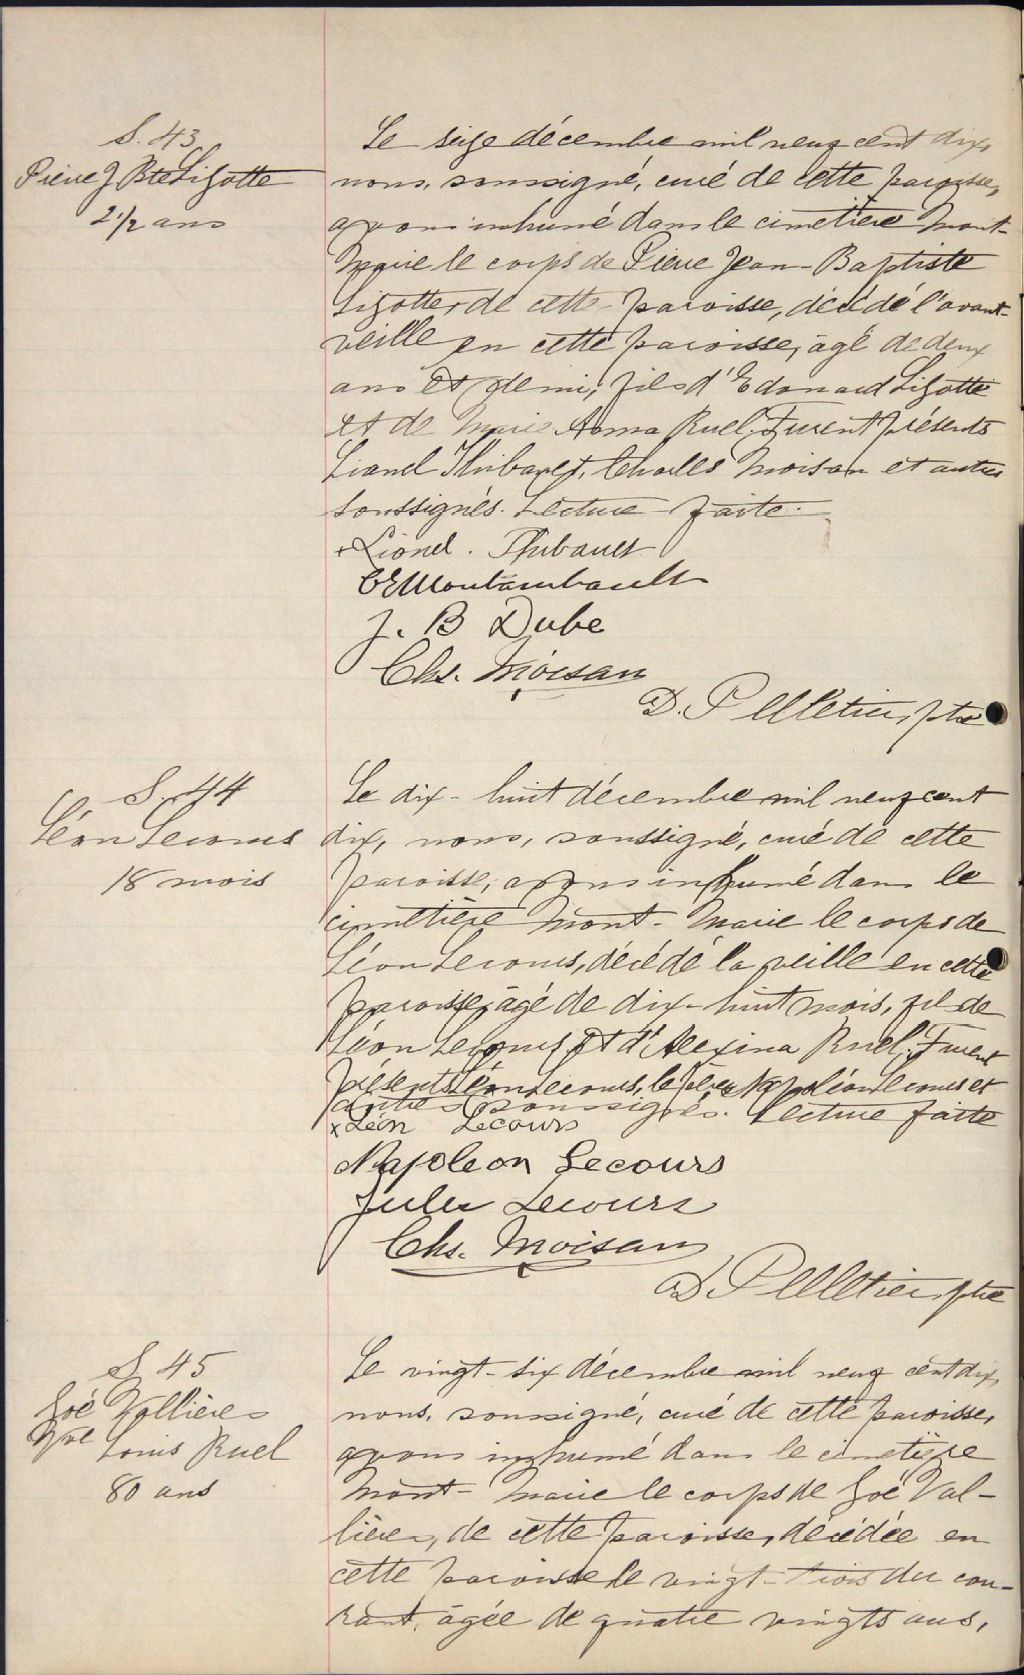 S. 43
Pierre J Bte Lizotte
2 1/2 ans
Le seize décembre mil neuf cent dix,
nous, soussigné, curé de cette paroisse,
avons inhumé dans le cimetière Mont-
Marie le corps de Pierre Jean-Baptiste
Lizotte, de cette paroisse, décédé l'avant-
veille en cette paroisse, âgé de deux
ans et demi, fils d'Edouard Lizotte
et de Marie Anna Ruel. Furent présents
Lionel Thibault, Charles Moisan et autres
soussignés. Lecture faite.
+ Lionel. Thibault
C E Montambault
J. B Dube
Chs. Moisan
D. Pelletier, ptre
S. 44
Léon Lecours
18 mois
Le dix-huit décembre mil neuf cent
dix, nous, soussigné, curé de cette
paroisse, avons inhumé dans le
cimetière Mont-Marie le corps de
Léon Lecours, décédé la veille en cette
paroisse, âgé de dix-huit mois, fils de
Léon Lecours et d'Alexina Ruel. Furent
présents Léon Lecours, le père, Napoléon Lecours et
autres soussignés. Lecture faite
x Léon Lecours
Napoleon Lecours
Jules Lecours
Chs. Moisan
D. Pelletier, ptre
S. 45
Zoé Vallières
Vve Louis Ruel
80 ans
Le vingt-six décembre mil neuf cent dix,
nous, soussigné, curé de cette paroisse,
avons inhumé dans le cimetière
Mont-Marie le corps de Zoé Val-
lières, de cette paroisse, décédée en
cette paroisse le vingt-trois du cou-
rant, âgée de quatre vingts ans,